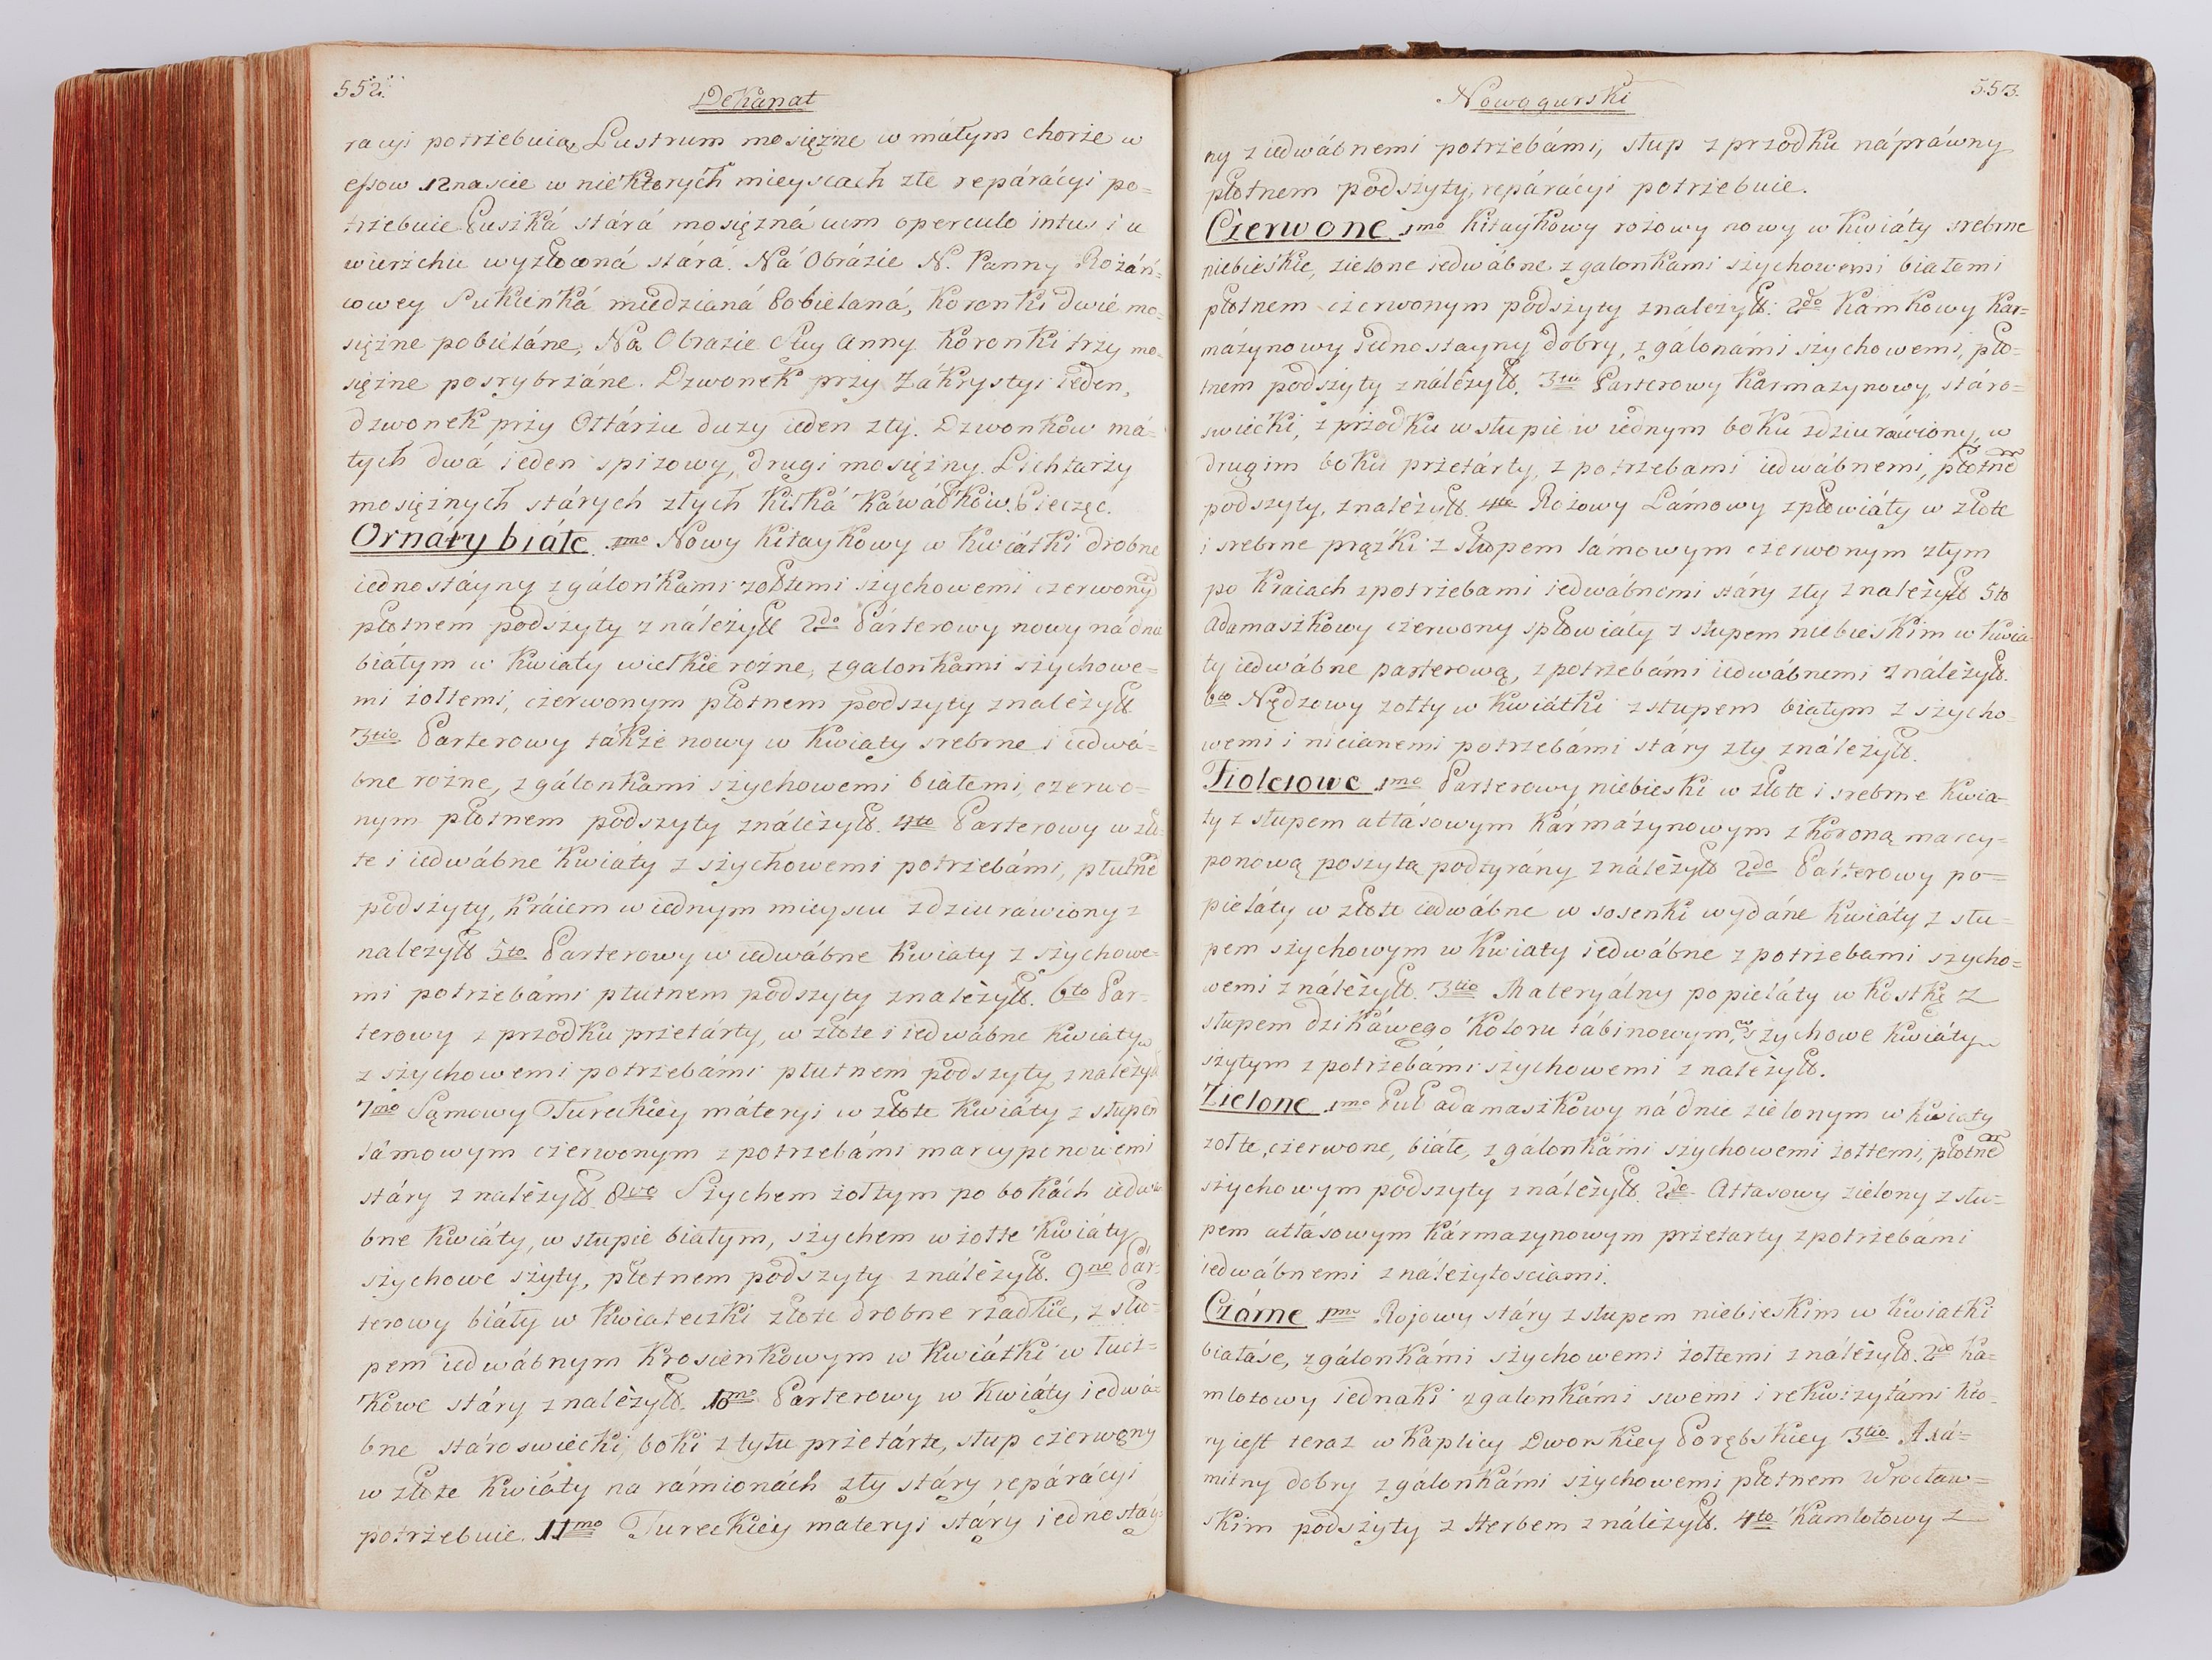 552.
Dekanat
racyi potrzebuią, Lustrum mosięzne w máłym chorze w
essow 12naście w niektorych mieyscach złe repárácyi po=
trzebuie Puszká stárá mosięzná cum operculo intus i u
wierzchu wyzłocona stára. Ná Obrázie N. Panny Rożáń=
cowey Sukienká miedzianá Pobielaná, Koronki dwie mo=
siężne pobieláne, Na Obrazie S. Anny Koronki trzy mo=
siężne posrybrzáne. Dzwonek przy Zákrystyi ieden,
dzwonek przy Ołtárzu duzy ieden zły. Dzwonków má=
łych dwá ieden spizowy, drugi mosiężny. Lichtarzy
mosiężnych stárych złych kilká káwáłków. Pieczęć.
Ornáty białe. 1mo Nowy kitaykowy w kwiátki drobne
iednostáyny z gálonkami zołtemi szychowemi czerwony
płotnem podszyty z náleżył 2do Párterowy nowy ná dnie
biáłym w kwiaty wielkie rożne, z galonkami szychowe=
mi żołtemi, czerwonym płotnem podszyty z należył
3tio Parterowy tákże nowy w kwiaty srebrne i iedwá=
bne rożne, z gálonkami szychowemi białemi, czerwo=
nym płotnem podszyty z náleżył. 4to Parterowy w zło=
te i iedwábne kwiáty z szychowemi potrzebámi, płutne
podszyty, kráiem w iednym mieyscu zdziurawiony z
należył 5to Parterowy w iedwábne kwiaty z szychowe=
mi potrzebámi płutnem podszyty z należył. 6to Par=
terowy z przodku przetárty, w złote i iedwábne kwiaty
z szychowemi potrzebámi płutnem podszyty, z należył
7mo Sąmowy Tureckiey máteryi w złote kwiáty z słupem
lámowym czerwonym z potrzebámi marcyponowemi
stáry z należył. 8vo Szychem żołtym po bokách iedwá
bne kwiáty, w słupie białym, szychem w żołte kwiáty
szychowe szyty, płotnem podszyty z náleżył. 9no Pár=
terowy biáły w kwiateczki złote drobne rzadkie, z słu=
pem iedwábnym krosienkowym w kwiátki w łucz=
kowe stáry z należył. 10mo Parterowy w kwiáty iedwá=
bne stároswiecki, boki z tyłu przetárte, słup czerwony
w złote kwiáty na rámionách zły stáry repárácyi
potrzebuie. 11mo Tureckiey materyi stáry iednostáy
Nowogurski
553.
ny z iedwábnemi potrzebámi, słup z przodku nápráwny
płotnem podszyty, repárácyi potrzebuie.
Czerwone 1mo kitaykowy rożowy nowy w kwiáty srebrne
niebieskie, zielone iedwábne z galonkami szychowemi białemi
płotnem czerwonym podszyty z należył. 2do Kamkowy kar=
mázynowy iednostayny dobry, z gálonámi szychowemi, pło=
tnem podszyty z náleżył. 3tio Parterowy karmazynowy, stáro=
swiecki, z przodku w słupie w iednym boku zdziuráwiony, w
drugim boku przetárty, z potrzebami iedwábnemi, płotne
podszyty, z należył. 4to Rożowy Lámowy zpłowiáły w złote
i srebrne prążki z słupem lámowym czerwonym złym
po kraiach z potrzebami iedwábnemi stáry zły z należył 5to
Adamaszkowy czerwony spłowiáły z słupem niebieskim w kwia
ty iedwábne parterową, z potrzebámi iedwábnemi z náleżył.
6to Nędzowy zołty w kwiátki z słupem białym z szycho=
wemi i nicianemi potrzebámi stáry zły z náleżył.
Fioletowe 1mo Parterowy niebieski w złote i srebrne kwia=
ty z słupem atłásowym kármázynowym z koroną marcy=
ponową poszytą podtyrány z náleżył 2do Párterowy po=
pieláty w złote iedwábne w sosenki wydáne kwiáty z słu=
pem szychowym w kwiaty iedwábne z potrzebami szycho=
wemi z náleżył. 3tio Materyálny popieláty w kostkę z
słupem dzikáwego koloru tábinowym, w szychowe kwiáty
szytym z potrzebámi szychowemi z należył.
Zielone 1mo Puł adamaszkowy ná dnie zielonym w kwiaty
zołte, czerwone, białe, z gálonkámi szychowemi żołtemi, płotne
szychowym podszyty z náleżył. 2do Atłasowy zielony z słu=
pem atłásowym kármazynowym przetarty z potrzebámi
iedwábnemi z należytosciami.
Czárne 1mo Rojowy stáry z słupem niebieskim w kwiatki
białáse, z gálonkámi szychowemi żołtemi z náleżył. 2do Ka=
mlotowy iednaki z galonkámi swemi i rekwizytámi kto=
ry iest teraz w Kaplicy Dworskiey Porębskiey 3tio Axá=
mitny dobry z gálonkámi szychowemi płotnem Wrocław=
skim podszyty z Herbem z náleżył. 4to Kamlotowy z